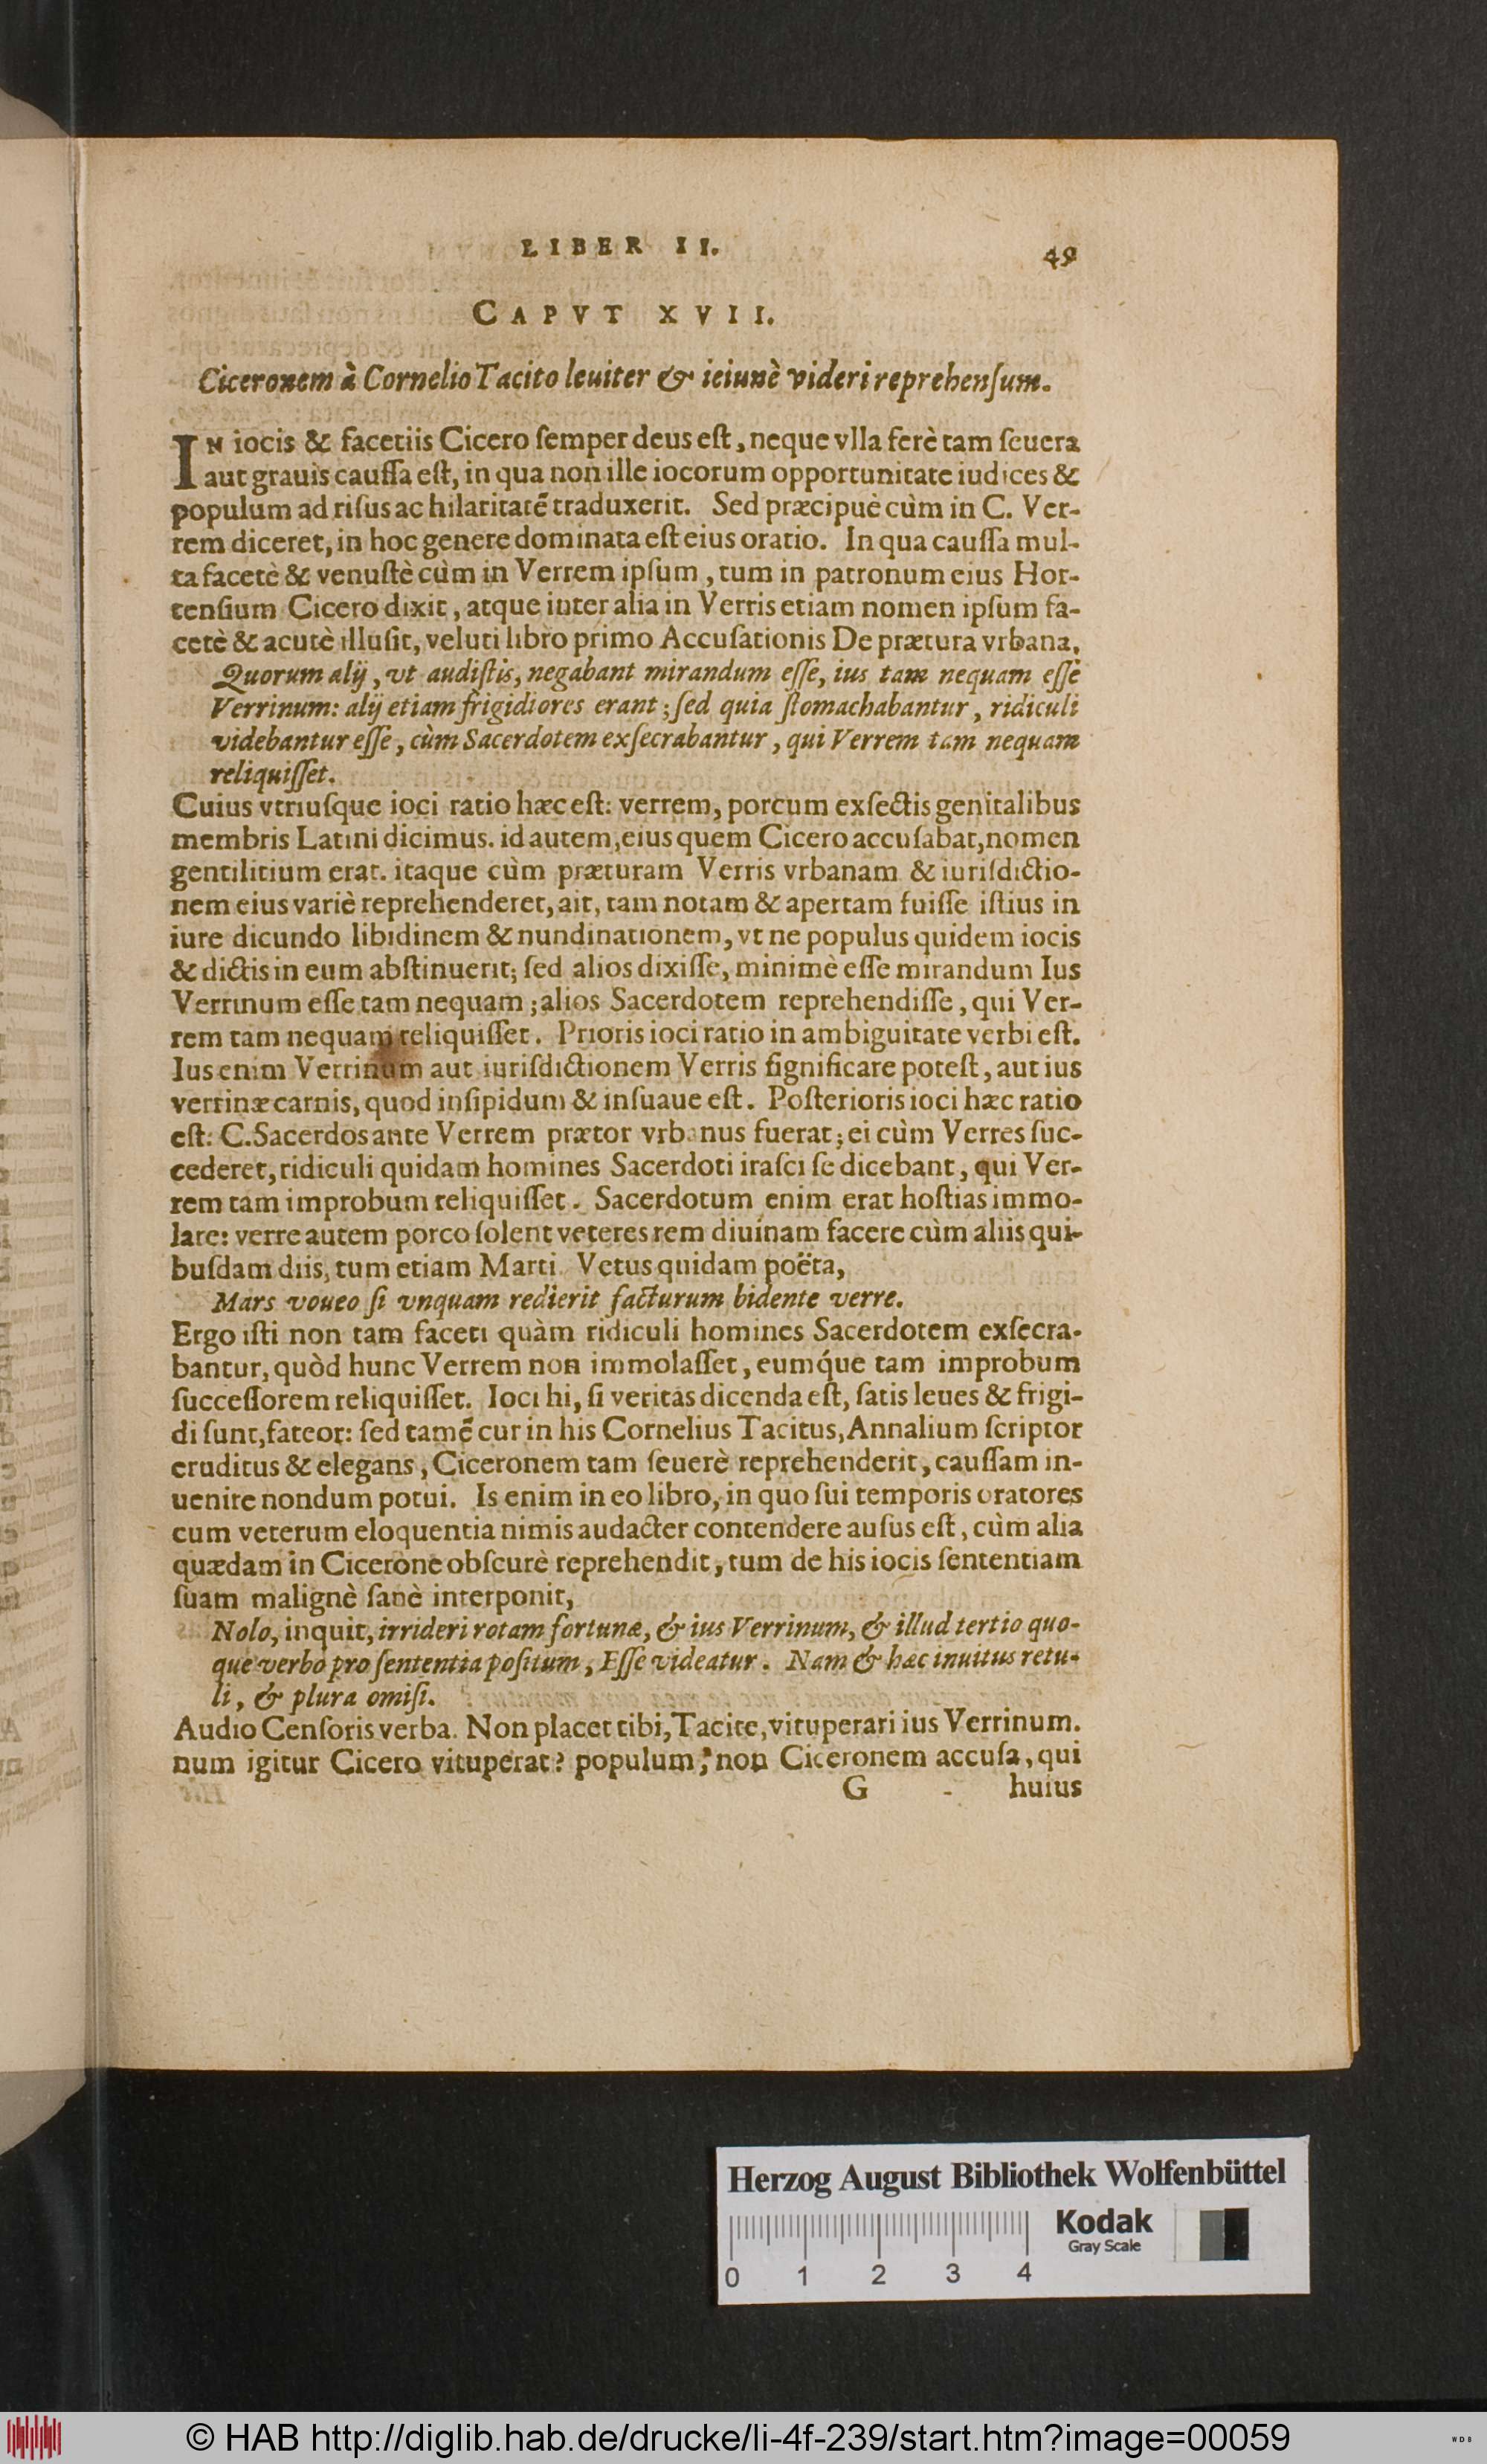 LIBER II. 49
CAPVT XVII.
Ciceronem à Cornelio Tacito leuiter & ieiunè videri reprehenſum.
IN iocis & facetiis Cicero ſemper deus eſt, neque vlla ferè tam ſeuera
aut grauis cauſſa eſt, in qua non ille iocorum opportunitate iudices &
populum ad riſus ac hilaritatē traduxerit. Sed præcipuè cùm in C. Ver-
rem diceret, in hoc genere dominata eſt eius oratio. In qua cauſſa mul-
ta facetè & venuſtè cùm in Verrem ipſum, tum in patronum eius Hor-
tenſium Cicero dixit, atque inter alia in Verris etiam nomen ipſum fa-
cetè & acutè illuſit, veluti libro primo Accuſationis De prætura vrbana,
Quorum alij, vt audiſtis, negabant mirandum eſſe, ius tam nequam eſſe
Verrinum: alij etiam frigidiores erant; ſed quia ſtomachabantur, ridiculi
videbantur eſſe, cùm Sacerdotem exſecrabantur, qui Verrem tam nequam
reliquiſſet.
Cuius vtriuſque ioci ratio hæc eſt: verrem, porcum exſectis genitalibus
membris Latini dicimus. id autem, eius quem Cicero accuſabat, nomen
gentilitium erat. itaque cùm præturam Verris vrbanam & iuriſdictio-
nem eius variè reprehenderet, ait, tam notam & apertam fuiſſe iſtius in
iure dicundo libidinem & nundinationem, vt ne populus quidem iocis
& dictis in eum abſtinuerit; ſed alios dixiſſe, minimè eſſe mirandum Ius
Verrinum eſſe tam nequam; alios Sacerdotem reprehendiſſe, qui Ver-
rem tam nequam reliquiſſet. Prioris ioci ratio in ambiguitate verbi eſt.
Ius enim Verrinum aut iuriſdictionem Verris ſignificare poteſt, aut ius
verrinæ carnis, quod inſipidum & inſuaue eſt. Poſterioris ioci hæc ratio
eſt: C. Sacerdos ante Verrem prætor vrbanus fuerat; ei cùm Verres ſuc-
cederet, ridiculi quidam homines Sacerdoti iraſci ſe dicebant, qui Ver-
rem tam improbum reliquiſſet. Sacerdotum enim erat hoſtias immo-
lare: verre autem porco ſolent veteres rem diuinam facere cùm aliis qui-
buſdam diis, tum etiam Marti. Vetus quidam poëta,
Mars voueo ſi vnquam redierit facturum bidente verre.
Ergo iſti non tam faceti quàm ridiculi homines Sacerdotem exſecra-
bantur, quòd hunc Verrem non immolaſſet, eumq́ue tam improbum
ſucceſſorem reliquiſſet. Ioci hi, ſi veritas dicenda eſt, ſatis leues & frigi-
di ſunt, fateor: ſed tamē cur in his Cornelius Tacitus, Annalium ſcriptor
eruditus & elegans, Ciceronem tam ſeuerè reprehenderit, cauſſam in-
uenire nondum potui. Is enim in eo libro, in quo ſui temporis oratores
cum veterum eloquentia nimis audacter contendere auſus eſt, cùm alia
quædam in Cicerone obſcurè reprehendit, tum de his iocis ſententiam
ſuam malignè ſanè interponit,
Nolo, inquit, irrideri rotam fortunæ, & ius Verrinum, & illud tertio quo-
que verbo pro ſententia poſitum, Eſſe videatur. Nam & hæc inuitus retu-
li, & plura omiſi.
Audio Cenſoris verba. Non placet tibi, Tacite, vituperari ius Verrinum.
num igitur Cicero vituperat? populum, non Ciceronem accuſa, qui
G huius
Herzog August Bibliothek Wolfenbüttel
Kodak
Gray Scale
0 1 2 3 4
© HAB http://diglib.hab.de/drucke/li-4f-239/start.htm?image=00059